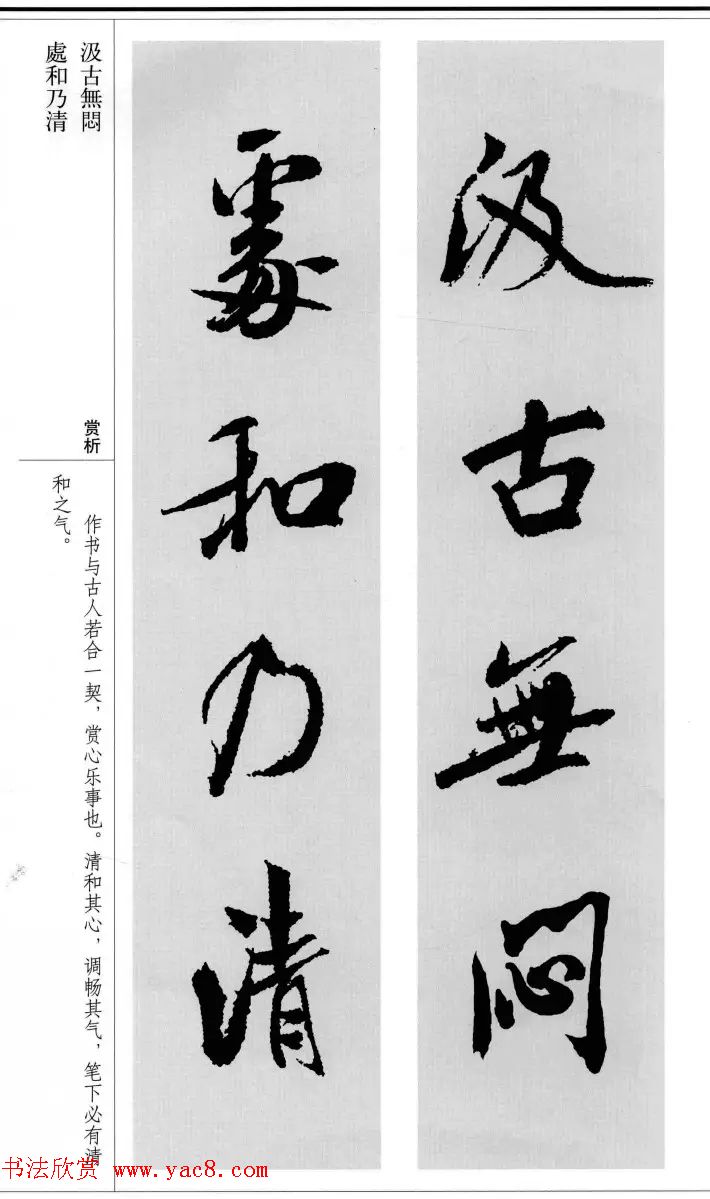 汲古無悶
處和乃清
汲古無悶
處和乃清
赏析
作书与古人若合一契，赏心乐事也。清和其心，调畅其气，笔下必有清
和之气。
书法欣赏 www.yac8.com